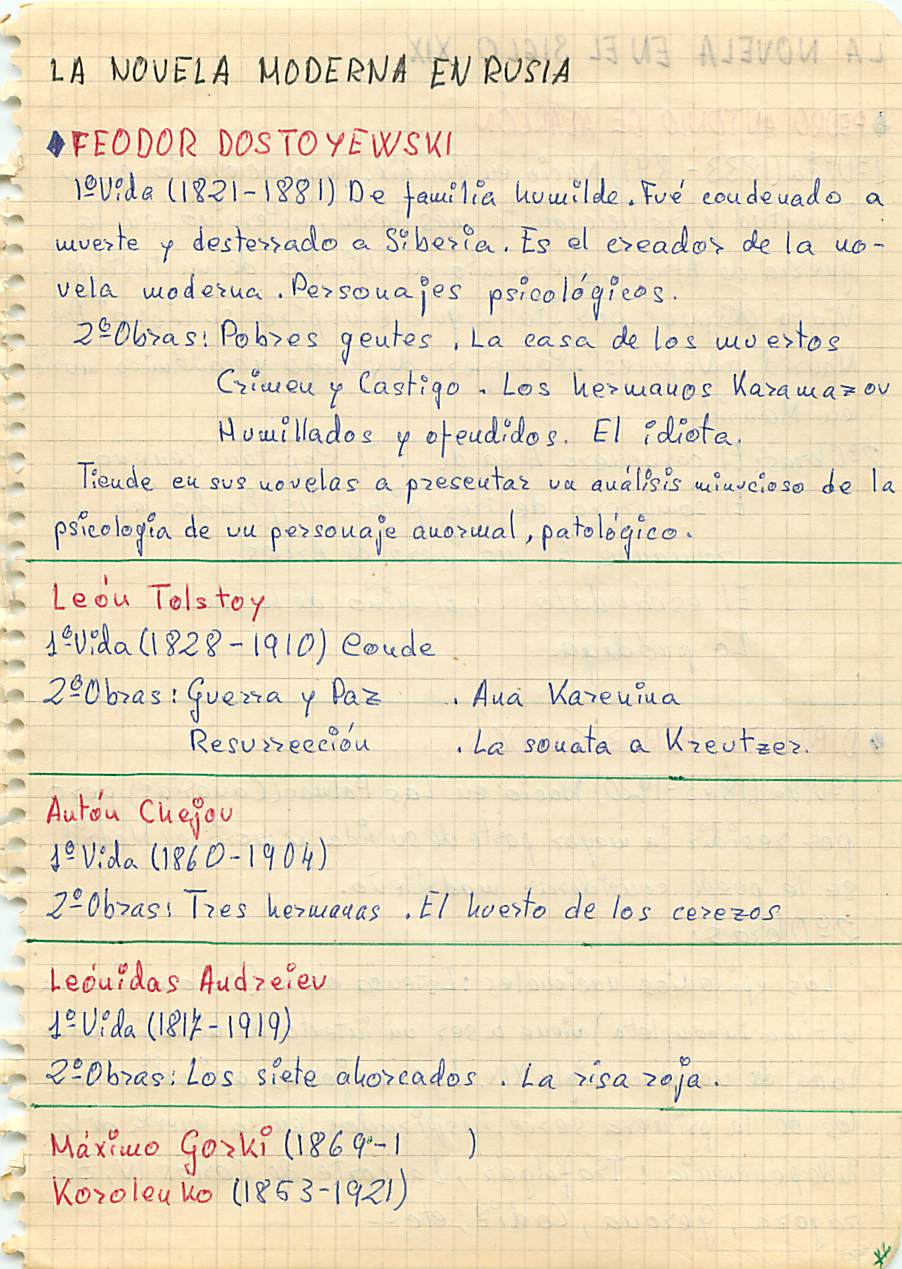 LA NOVELA MODERNA EN RUSIA
FEODOR DOSTOYEWSKI
1º Vida (1821-1881) De familia humilde. Fué condenado a
muerte y desterrado a Siberia. Es el creador de la no-
vela moderna. Personajes psicológicos.
2º Obras: Pobres gentes. La casa de los muertos
Crimen y Castigo. Los hermanos Karamazov
Humillados y ofendidos. El idiota.
Tiende en sus novelas a presentar un análisis minucioso de la
psicología de un personaje anormal, patológico.
León Tolstoy
1º Vida (1828-1910) Conde
2º Obras: Guerra y Paz . Ana Karenina
Resurrección . La sonata a Kreutzer.
Antón Chejov
1º Vida (1860-1904)
2º Obras: Tres hermanas . El huerto de los cerezos
Leónidas Andreiev
1º Vida (1817-1919)
2º Obras: Los siete ahorcados . La risa roja.
Máximo Gorki (1869-1 )
Korolenko (1853-1921)